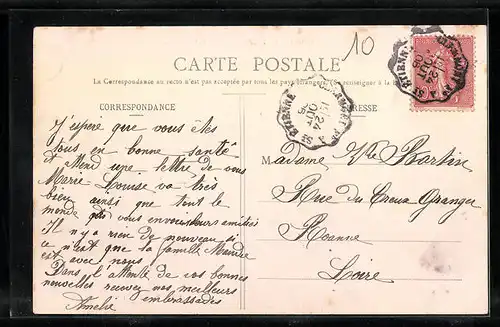 10
CARTE POSTALE
La Correspondance au recto n'est pas acceptée par tous les pays étrangers. (Se renseigner à la
CORRESPONDANCE
ADRESSE
J'espère que vous êtes
tous en bonne santé
et attend une lettre de vous
Marie-Louise va très
bien ainsi que tout le
monde qui vous envoie leurs amitiés
Il n'y a rien de nouveau si
ce n'est que la famille
est avec nous
Dans l'attente de vos bonnes
nouvelles recevez nos meilleurs
embrassades
Amélie
Madame Vve Bartin
Rue du Creux Granger
Roanne
Loire
ST ETIENNE
24
OCT
06